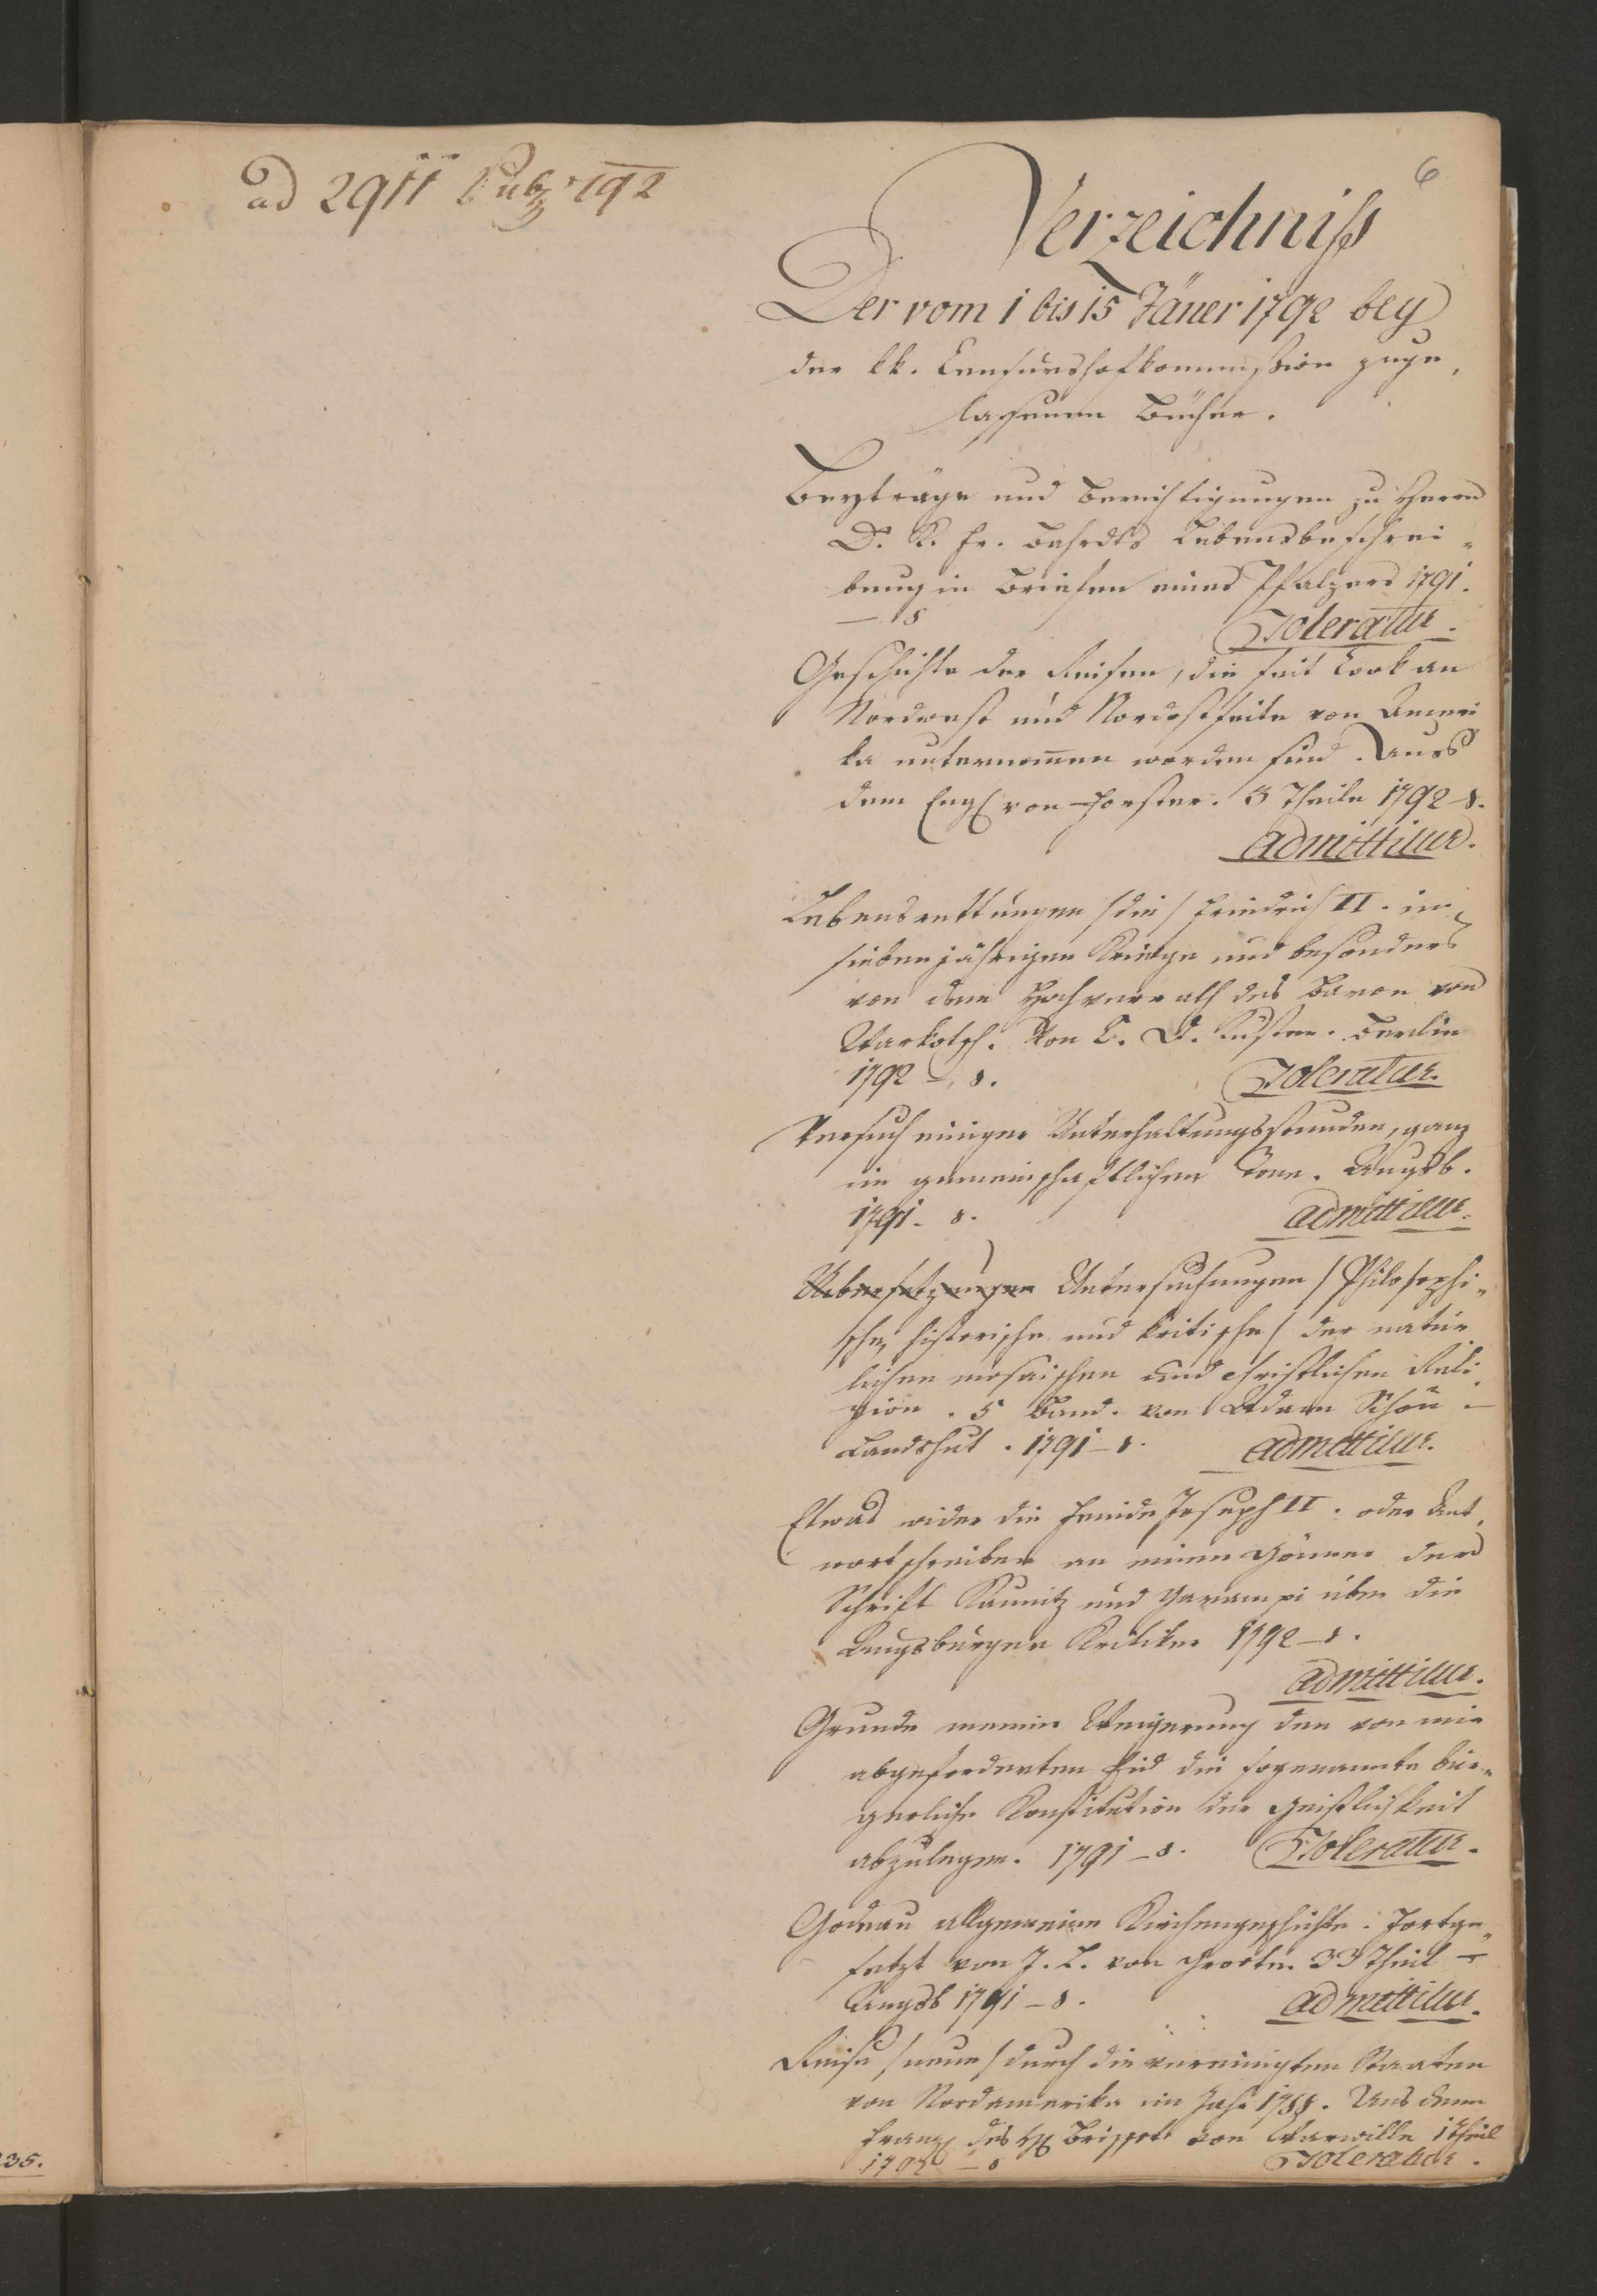 ad 2911 Pub 792
6
Verzeichniß
Der vom 1 bis 15 Jäner 1792 bey
der kk. Censurshofkommißion zuge,
laßenen Bücher.
Beyträge und Berichtigungen zu Herrn
D. K. Fr. Bahrdts Lebensbeschrei-
bung in Briefen eines Pfalzers 1791.
— 8
Toleratur.
Geschichte der Reisen, die seit Cook an
Nordwest und Nordostseite von Ameri
ka unternom̄en worden sind. Aus
dem Engl von Forster. 3 Theile 1792-8.
Admittitur.
Lebensrettungen /die/ Friedrich II. im
siebenjährigen Kriege und besonders
von dem Hochverrath des Baron von
Warkotsch. Von C. D. Küster. Berlin
1792 - 8.
Toleratur.
Versuch einiger Unterhaltungsstunden, ganz
im gemeinschaftlichen Tone. Augsb.
1791- 8.
admittitur.
Uebersetzungen Untersuchungen /Philosophi-
sche, historische und kritische/ der natür
lichen mosaischen und christlichen Reli-
gion. 5 Band. von Adam Schön -
Landshut. 1791-8.
admittitur.
Etwas wider die Feinde Joseph II. oder Ant,
wortschreiben an einen Gönner der
Schrift Kaunitz und Garampi über die
Augsburger Kritiker 1792-8.
admittitur.
Grunde meiner Weigerung den von mir
abgeforderten Eid die sogenannte bür-
gerliche Konstitution der Geistlichkeit
abzulegen. 1791-8.
Toleratur.
Godeau allgemeine Kirchengeschichte. Fortge-
setzt von J. L. von Grooten 33 Theil -
Augsb 1791-8.
admittitur.
Reise /neue/ durch die vereinigten Staaten
von Nordamerika im Jahr 1788. Aus dem
Franz des H Brissott von Warwille 1 Theil
1792 - 8
Toleratur.
235.